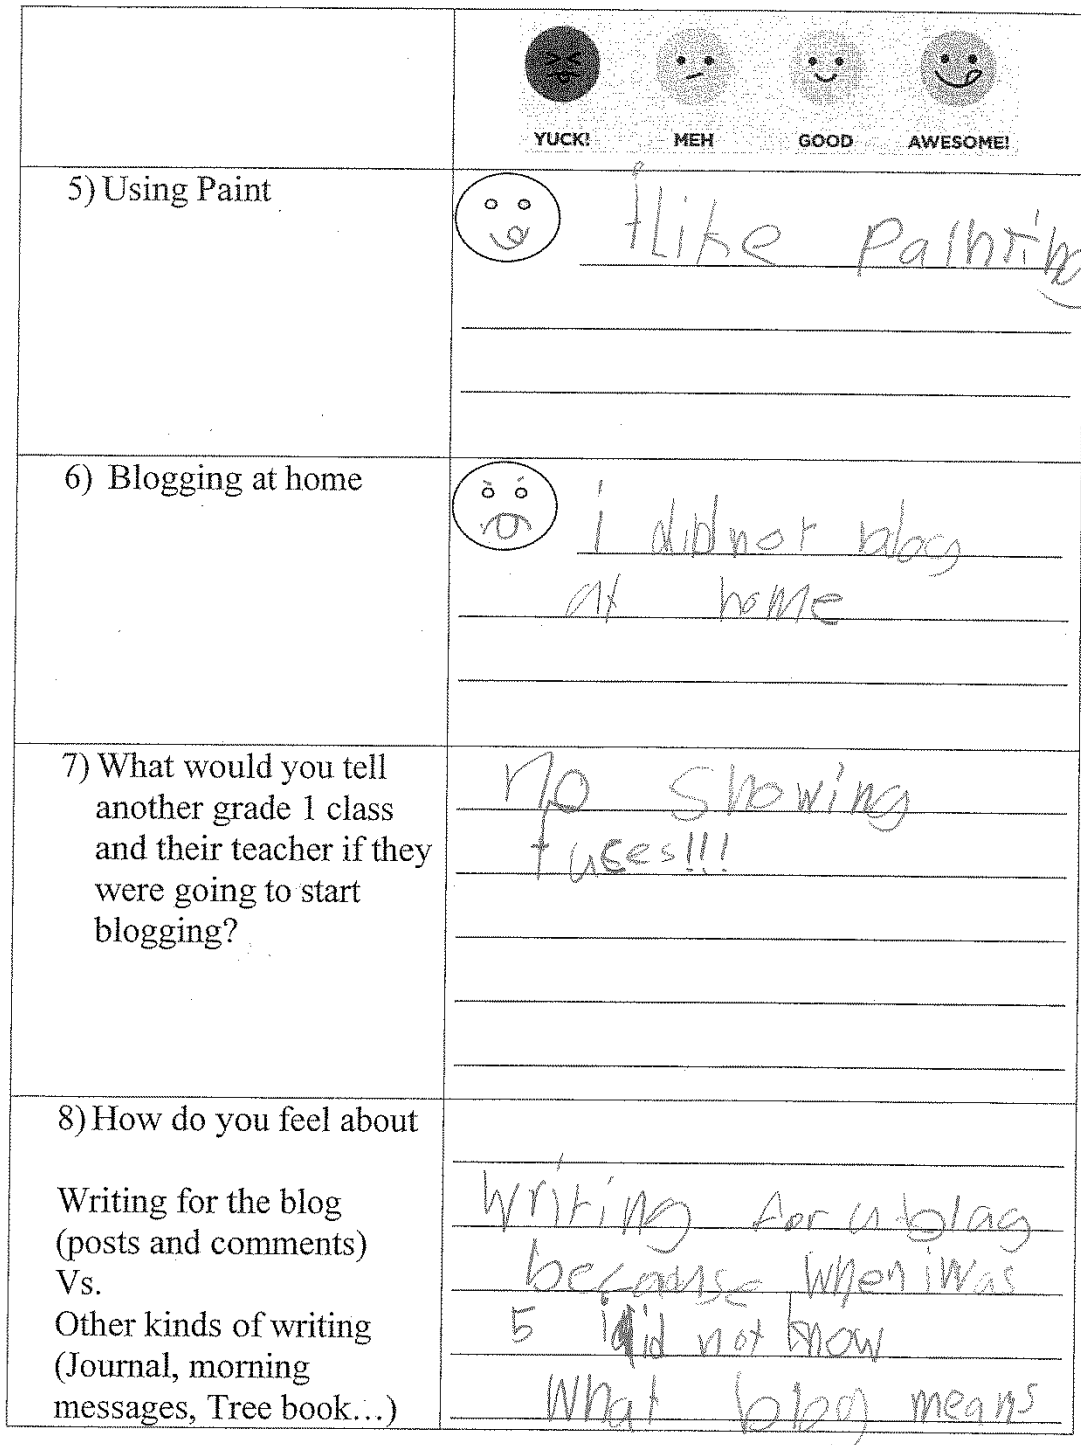 YUCK! MEH GOOD AWESOME!
5) Using Paint
i like painting
6) Blogging at home
i did not blog
at home
7) What would you tell
another grade 1 class
and their teacher if they
were going to start
blogging?
no showing
fuces!!!
8) How do you feel about
Writing for the blog
(posts and comments)
Vs.
Other kinds of writing
(Journal, morning
messages, Tree book...)
Writing for a blag
because when i was
5 i did not know
What blog means